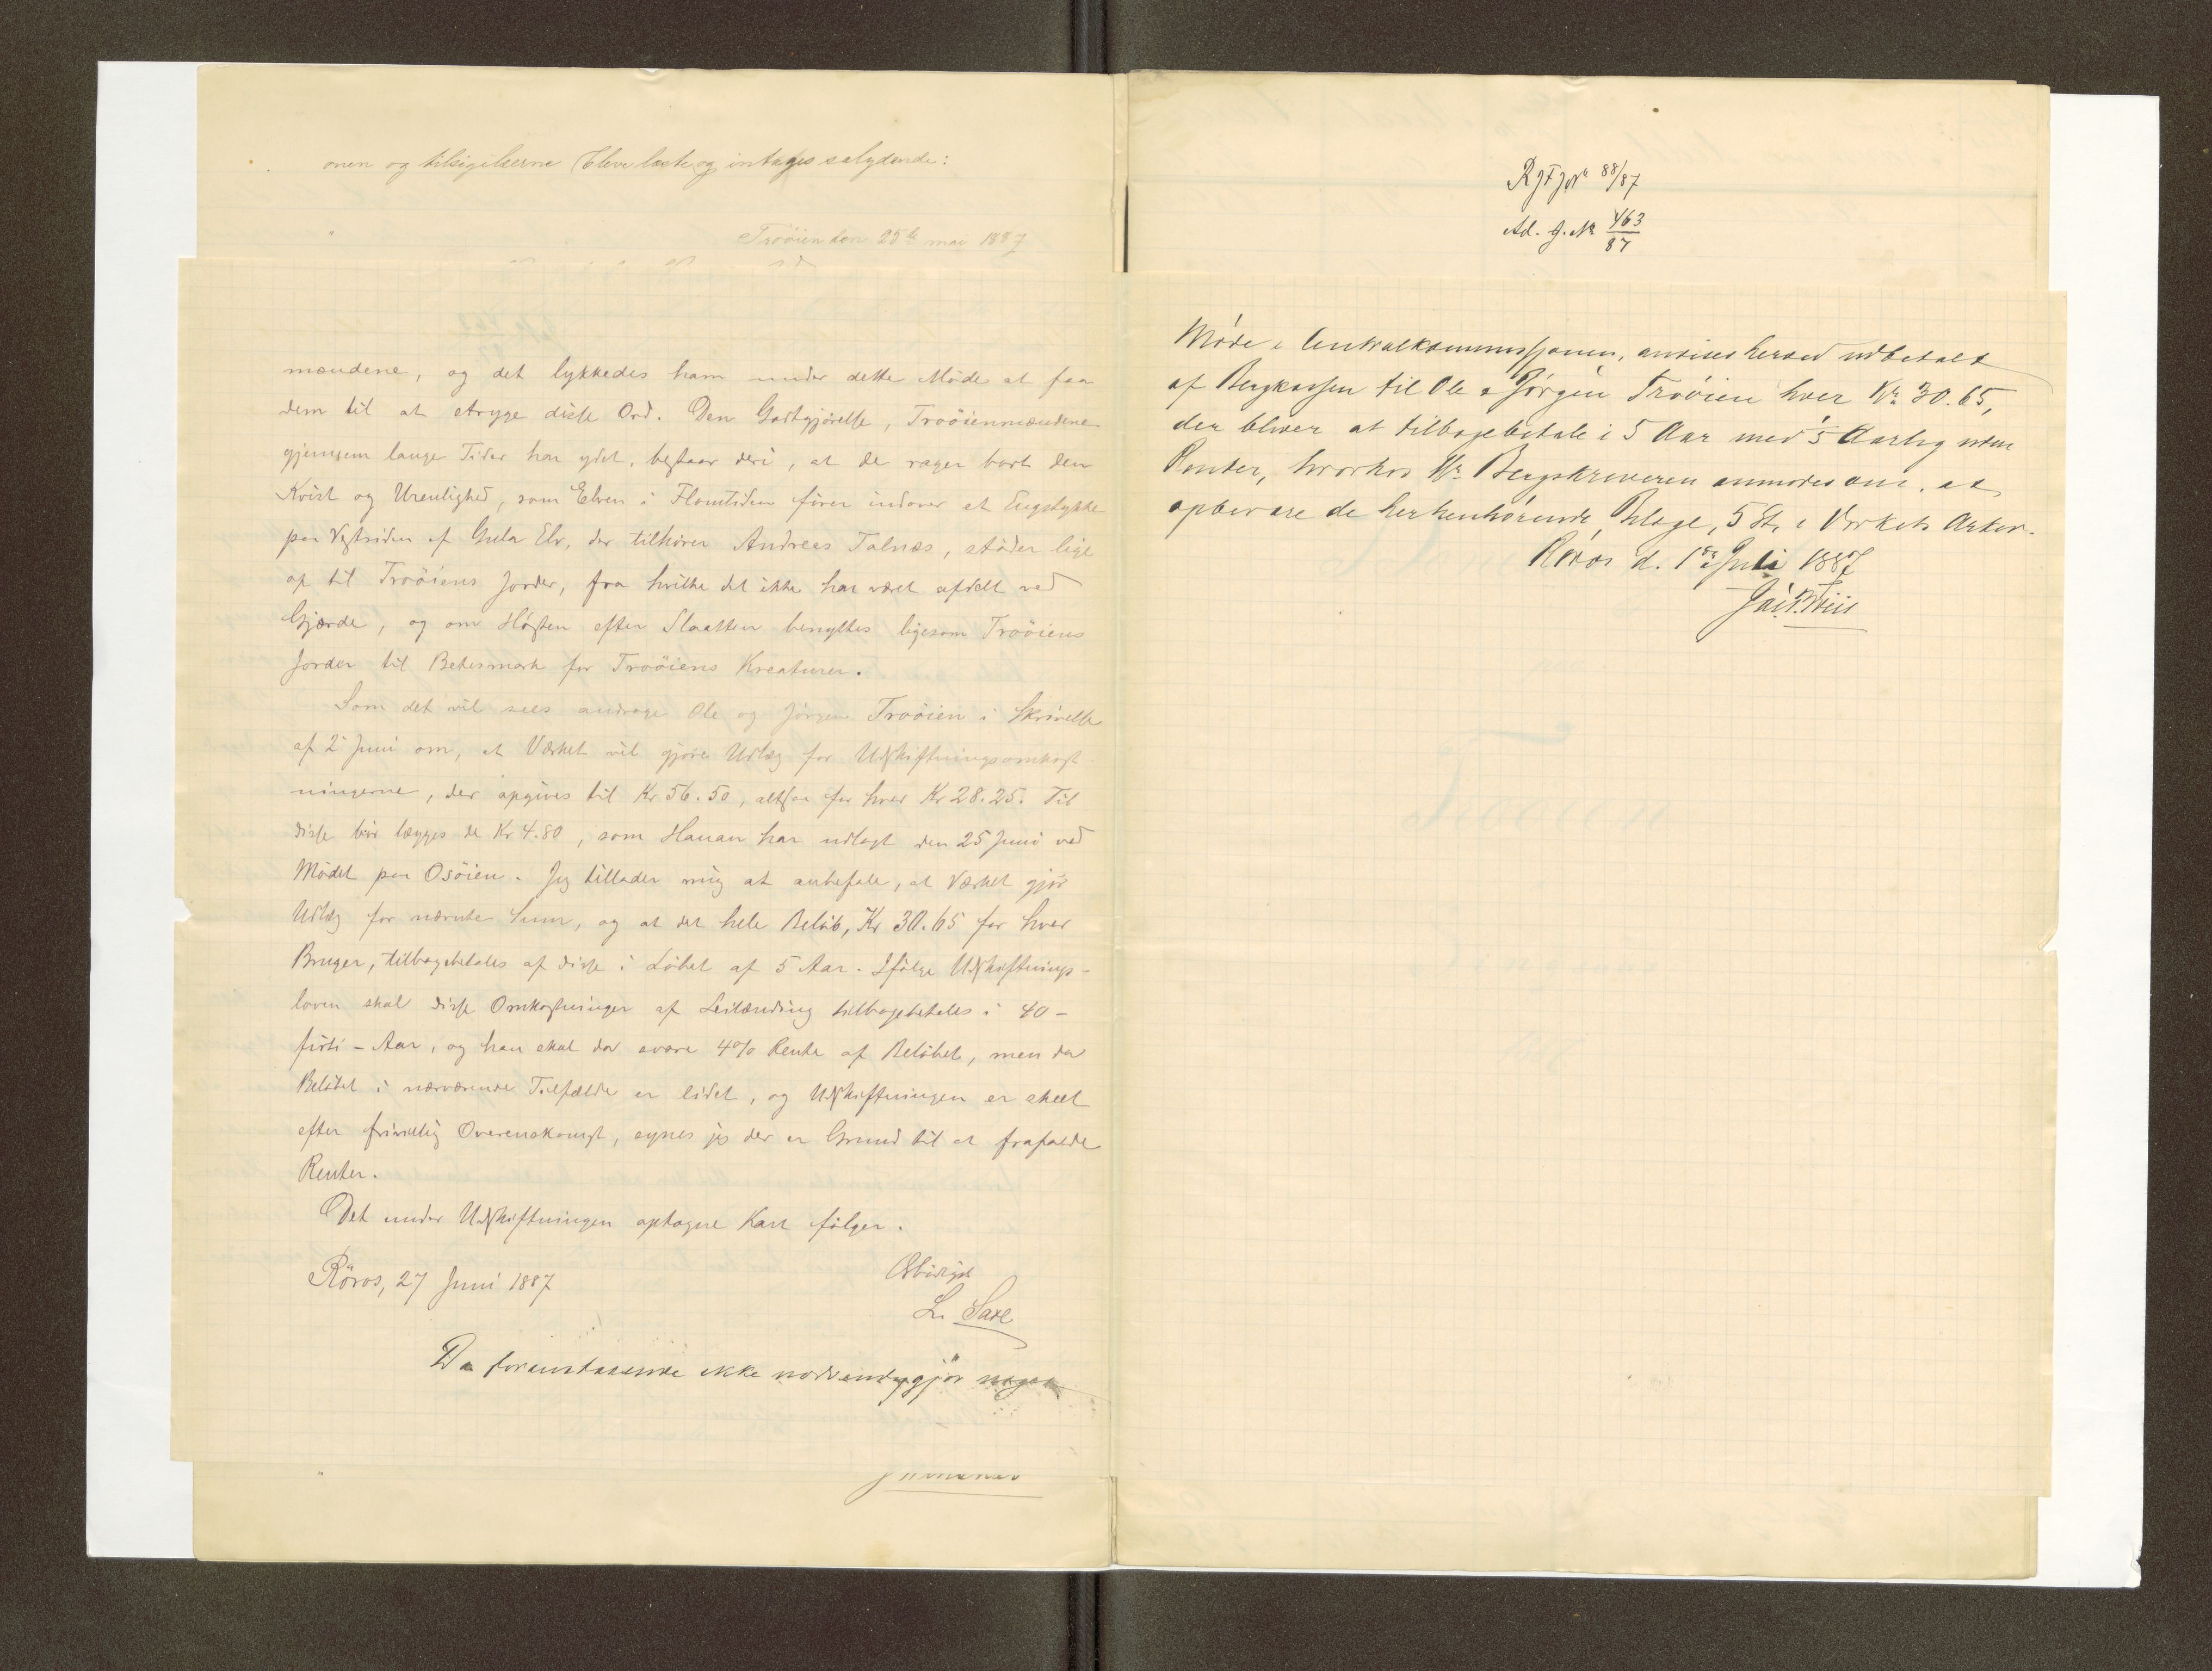 onen og tilsigelserne bleve læste og intages salydende:
Troöien den 25de mai 1887
mændene, og det lykkedes ham under dette Møde at faa
dem til at stryge disse Ord. Den Godtgjörelse, Troöienmændene
gjennem lange Tider har ydet, bestaar deri, at de rager bort den
Kvist og Urenlighed, som Elven i Flomtiden fører indover et Engstykke
paa Vestsiden af Gula Elv, der tilhører Andreas Talnæs, støder lige
op til Troöiens Jorder, fra hvilke det ikke har været afdelt ved
Gjærde, og om Høsten efter Slaatten benyttes ligesom Troöiens
Jorder til Betesmark for Troöiens Kreaturer.
Som det vil sees andrage Ole og Jörgen Troöien i Skrivelse
af 2 Juni om, at Værket vil gjøre Udlæg for Udskiftningsomkost
ningerne, der opgives til Kr 56.50, altsaa for hver Kr 28.25. Til
disse bör lægges de Kr 4.80, som Hanan har udlagt den 25 Juni ved
Mödet paa Osöien. Jeg tillader mig at anbefale, at Værket gjör
Udlæg for nævnte Sum, og at det hele Belöb, Kr 30.65 for hver
Bruger, tilbagebetales af disse i Löbet af 5 Aar. Ifölge Udskiftnings-
loven skal disse Omkostninger af Leilænding tilbagebetales i 40 -
firti - Aar, og han skal da svare 4% Rente af Belöbet, men da
Belöbet i nærværende Tilfælde er lidet, og Udskiftningen er skeet
efter frivillig Overenskomst, synes jeg der er Grund til at frafalde
Renter.
Det under Udskiftningen optagne Kart fölger.
Röros, 27 Juni 1887
Ærbödigst
L. Saxe
Da foranstaaende ikke nødvendiggjør nogen
88/87
Ad. g. No 463/87
Møde i Centralkommissjonen, anvises herved udbetalt
af Bergkassen til Ole & Jörgen Troöien hver Kr. 30.65,
der bliver at tilbagebetale i 5 Aar med 1/5 Aarlig uden
Renter, hvorhos Hr. Bergskriveren anmodes om, at
opbevare de herhenhørende Bilage, 5 St, i Værkets Arkiv.
Röros d. 1ste Juli 1887